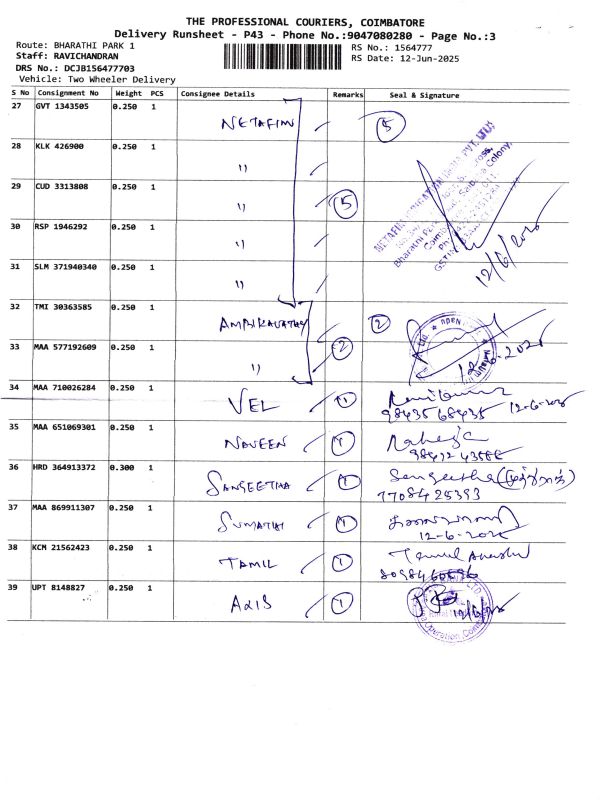 THE PROFESSIONAL COURIERS, COIMBATORE
Delivery Runsheet - P43 - Phone No.:9047080280 - Page No.:3
Route: BHARATHI PARK 1
RS No.: 1564777
Staff: RAVICHANDRAN
RS Date: 12-Jun-2025
DRS No.: DCJB156477703
Vehicle: Two Wheeler Delivery
S No Consignment No Weight PCS Consignee Details Remarks Seal & Signature
27 GVT 1343505 0.250 1 NETAFIM 5
28 KLK 426900 0.250 1 "
29 CUD 3313808 0.250 1 " 5
30 RSP 1946292 0.250 1 "
31 SLM 371940340 0.250 1 "
12/6/2025
32 TMI 30363585 0.250 1 AMBIKAVATHY 2
33 MAA 577192609 0.250 1 " 2
34 MAA 710026284 0.250 1 VEL 1
98435 68435 12-6-2025
35 MAA 651069301 0.250 1 NAVEEN 1
36 HRD 364913372 0.300 1 SANGEETHA 1 Sangeetha
77084 25393
37 MAA 869911307 0.250 1 SUMATHI 1
12-6-2025
38 KCM 21562423 0.250 1 TAMIL 1
39 UPT 8148827 0.250 1 AXIS 1